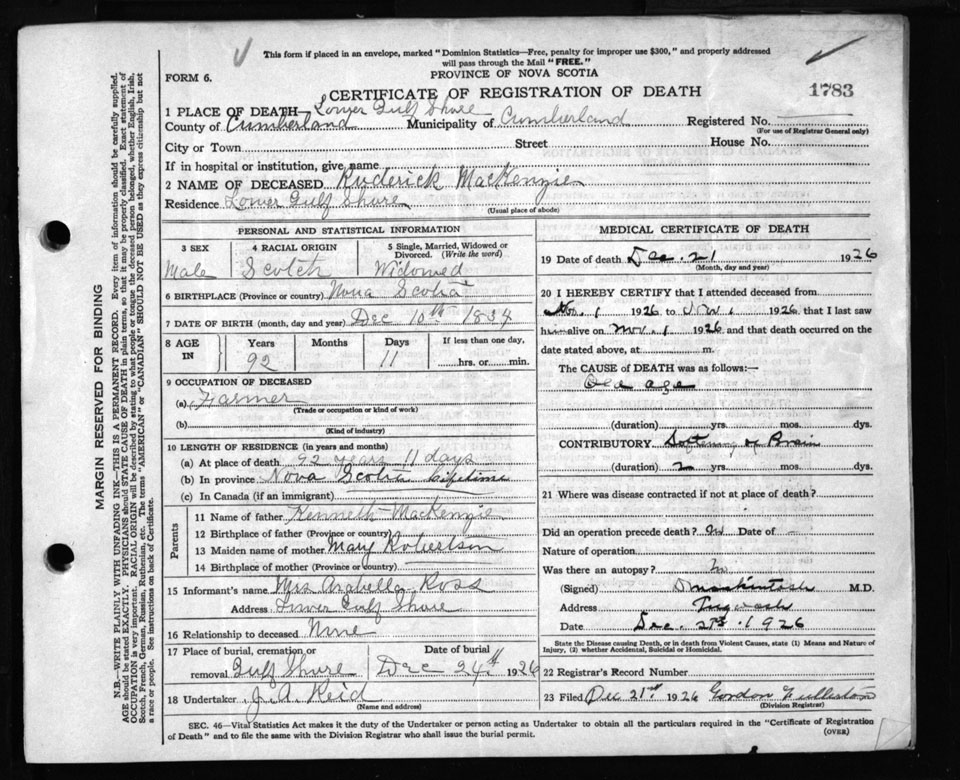 This form if placed in an envelope, marked "Dominion Statistics—Free, penalty for improper use $300," and properly addressed
will pass through the Mail "FREE."
FORM 6.
PROVINCE OF NOVA SCOTIA
CERTIFICATE OF REGISTRATION OF DEATH
1783
1 PLACE OF DEATH— Lower Gulf Shore
County of Cumberland Municipality of Cumberland Registered No.
(For use of Registrar General only)
City or Town Street House No.
If in hospital or institution, give name
2 NAME OF DECEASED Ruderick MacKenzie
Residence Lower Gulf Shore
(Usual place of abode)
MARGIN RESERVED FOR BINDING
N.B.—WRITE PLAINLY WITH UNFADING INK—THIS IS A PERMANENT RECORD. Every item of information should be carefully supplied.
AGE should be stated EXACTLY. PHYSICIANS should STATE CAUSE OF DEATH in plain terms, so that it may be properly classified. Exact statement of
OCCUPATION is very important. RACIAL ORIGIN will be described by stating to what people or tongue the deceased person belonged, whether English, Irish,
Scotch, French, German, Russian, Ruthenian, etc. The terms "AMERICAN" or "CANADIAN" SHOULD NOT BE USED as they express citizenship but not
a race or people. See instructions on back of Certificate.
PERSONAL AND STATISTICAL INFORMATION
3 SEX 4 RACIAL ORIGIN 5 Single, Married, Widowed or
Divorced. (Write the word)
Male Scotch Widowed
6 BIRTHPLACE (Province or country) Nova Scotia
7 DATE OF BIRTH (month, day and year) Dec 10th 1834
8 AGE IN Years Months Days If less than one day,
92 11 hrs. or min.
9 OCCUPATION OF DECEASED
(a) Farmer
(Trade or occupation or kind of work)
(b)
(Kind of industry)
10 LENGTH OF RESIDENCE (in years and months)
(a) At place of death 92 years 11 days
(b) In province Nova Scotia Lifetime
(c) In Canada (if an immigrant)
Parents
11 Name of father Kenneth MacKenzie
12 Birthplace of father (Province or country)
13 Maiden name of mother Mary Robertson
14 Birthplace of mother (Province or country)
15 Informant's name Mrs Arabella Ross
Address Lower Gulf Shore
16 Relationship to deceased None
17 Place of burial, cremation or Date of burial
removal Gulf Shore Dec 24th 1926
18 Undertaker J. A. Reid
(Name and address)
MEDICAL CERTIFICATE OF DEATH
19 Date of death Dec. 21 1926
(Month, day and year)
20 I HEREBY CERTIFY that I attended deceased from
Nov. 1 1926 to 1926, that I last saw
h alive on Nov. 1 1926 and that death occurred on the
date stated above, at m.
The CAUSE of DEATH was as follows:—
Old age
(duration) yrs. mos. dys.
CONTRIBUTORY Softening of Brain
(duration) 2 yrs. mos. dys.
21 Where was disease contracted if not at place of death?
Did an operation precede death? No Date of -
Nature of operation
Was there an autopsy? No
(Signed) D Mackintosh M.D.
Address Pugwash
Date Dec. 1926
State the Disease causing Death, or in death from Violent Causes, state (1) Means and Nature of
Injury, (2) whether Accidental, Suicidal or Homicidal.
22 Registrar's Record Number
23 Filed Dec 21st 1926 Gordon
(Division Registrar)
SEC. 46—Vital Statistics Act makes it the duty of the Undertaker or person acting as Undertaker to obtain all the particulars required in the "Certificate of Registration
of Death" and to file the same with the Division Registrar who shall issue the burial permit.
(OVER)